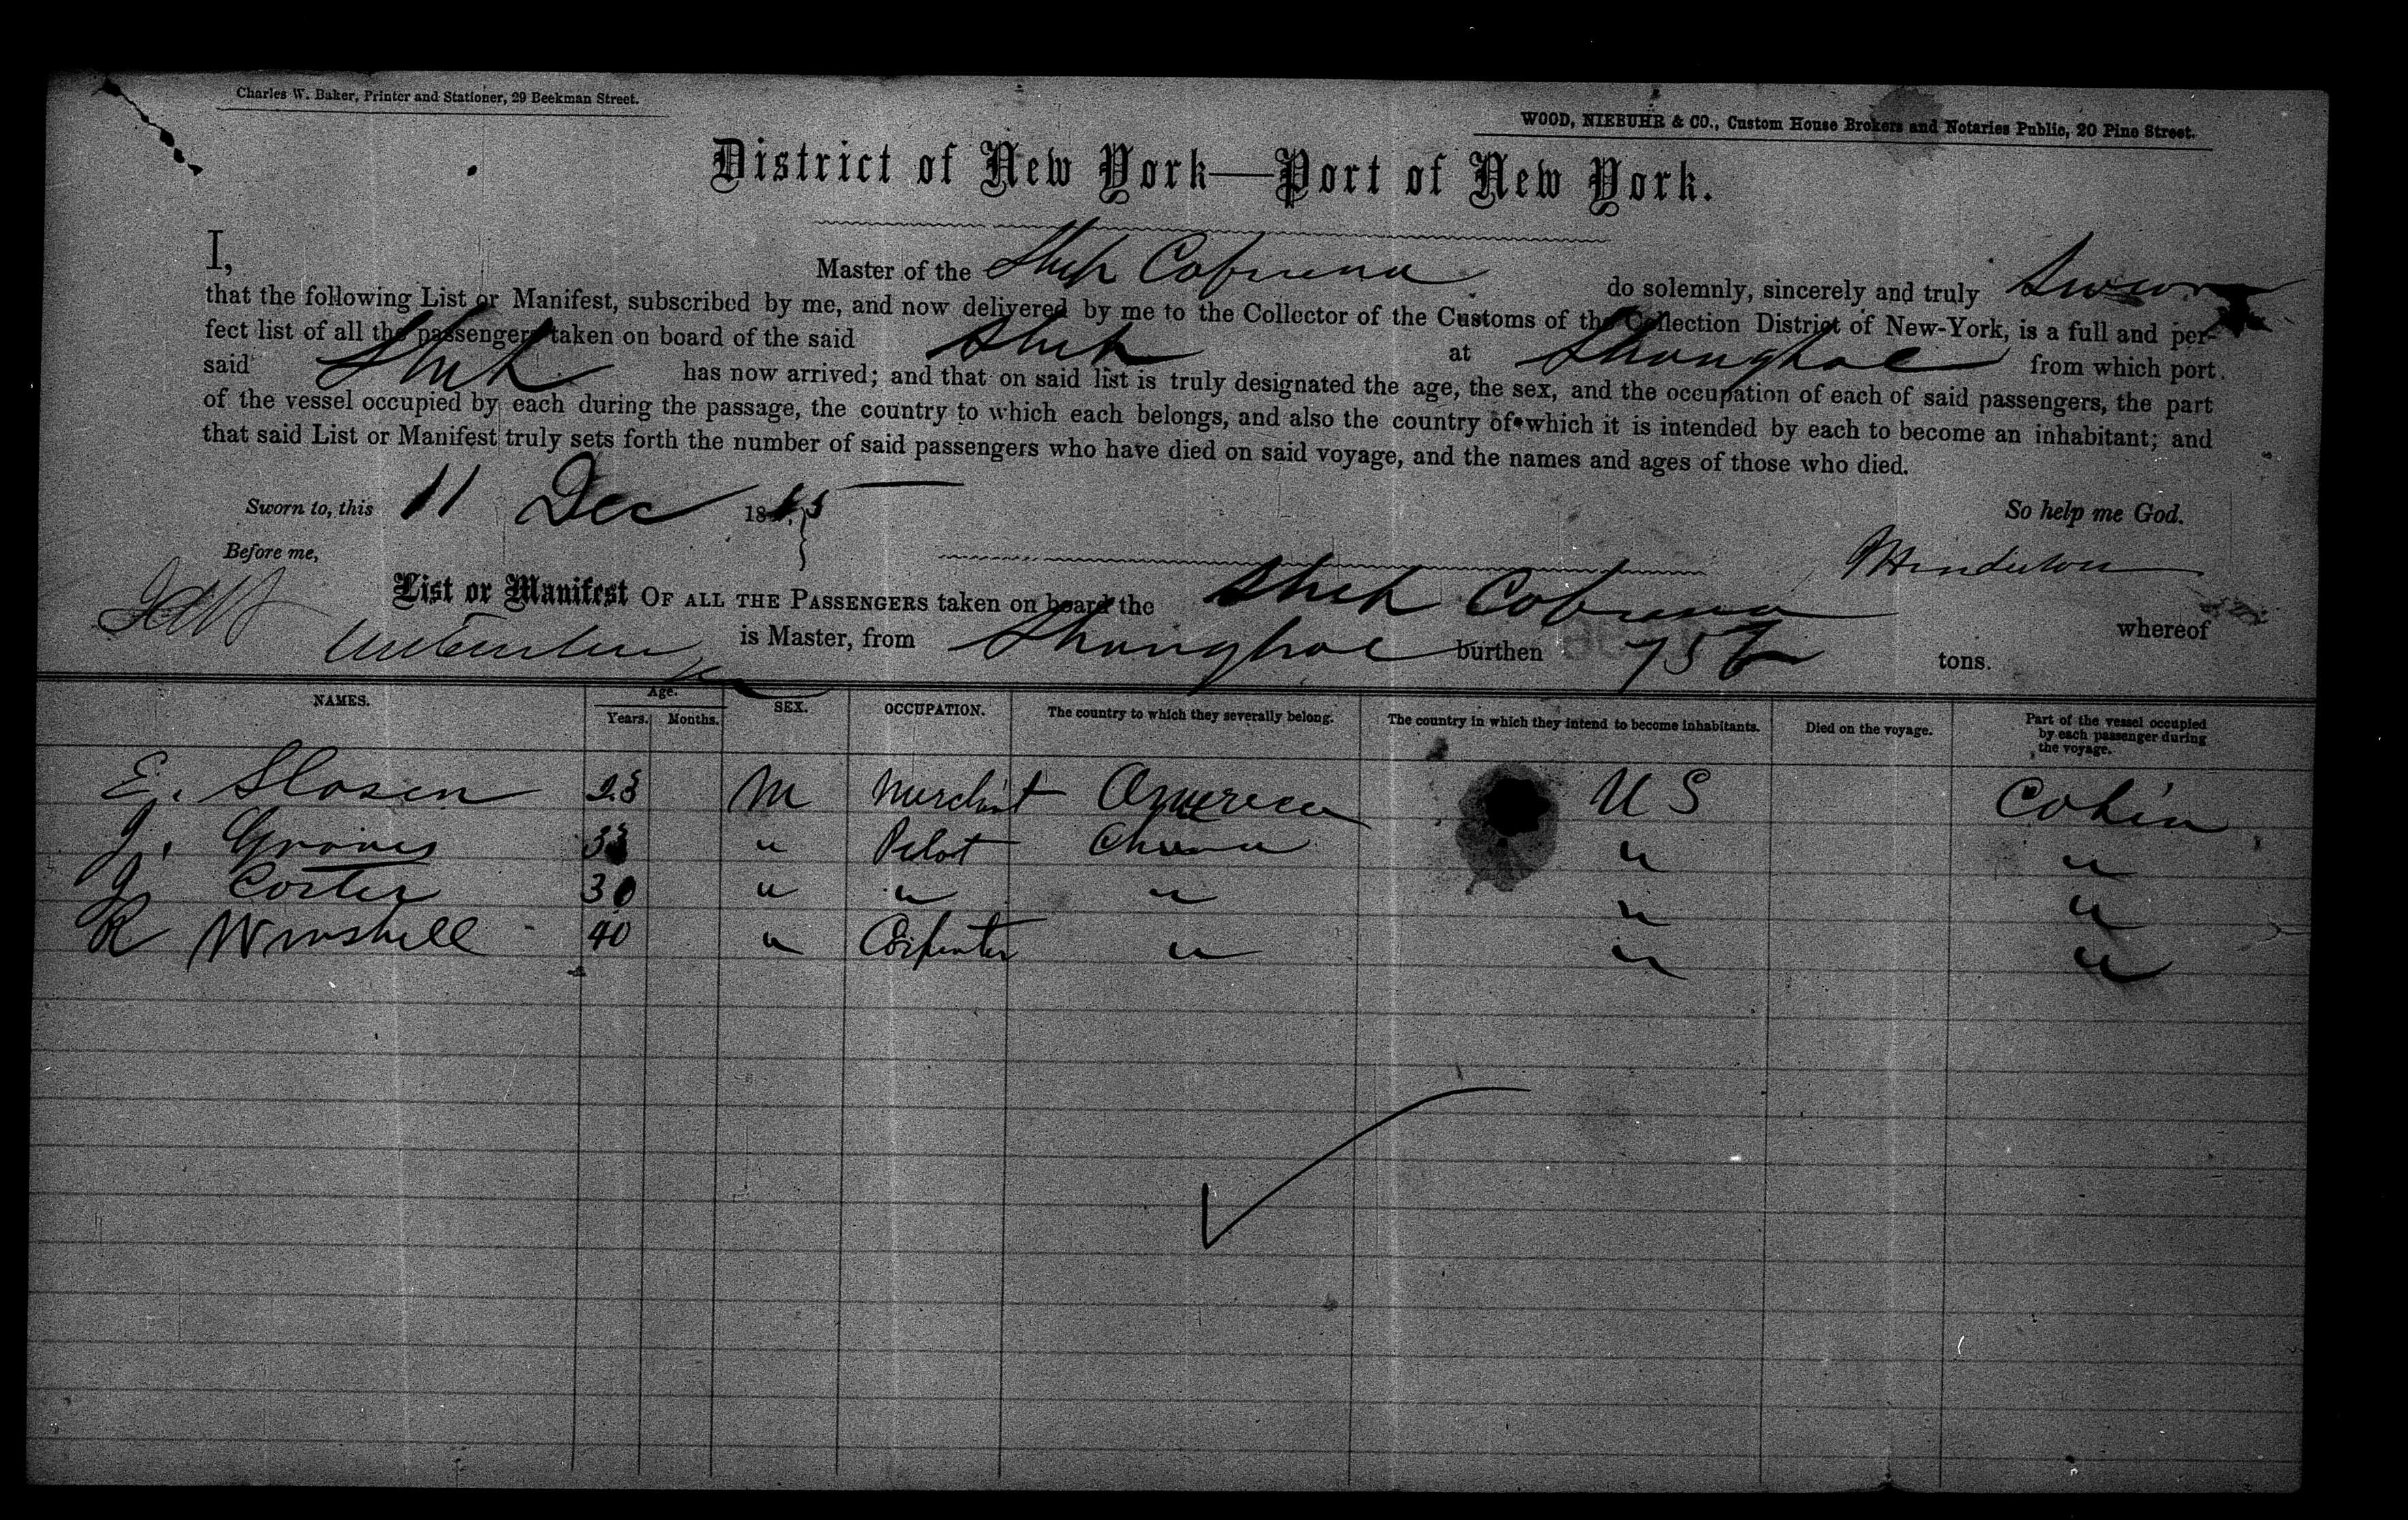 Charles W. Baker, Printer and Stationer, 29 Beekman Street.
WOOD, NIEBUHR & CO., Custom House Brokers and Notaries Public, 20 Pine Street.
District of New York—Port of New York.
I, Master of the Ship do solemnly, sincerely and truly Swear
that the following List or Manifest, subscribed by me, and now delivered by me to the Collector of the Customs of the Collection District of New-York, is a full and per-
fect list of all the passengers taken on board of the said Ship at Shanghae from which port
said Ship has now arrived; and that on said list is truly designated the age, the sex, and the occupation of each of said passengers, the part
of the vessel occupied by each during the passage, the country to which each belongs, and also the country of which it is intended by each to become an inhabitant; and
that said List or Manifest truly sets forth the number of said passengers who have died on said voyage, and the names and ages of those who died.
Sworn to, this 11 Dec 18
So help me God.
Before me,
List or Manifest OF ALL THE PASSENGERS taken on board the Ship whereof
is Master, from Shanghae burthen tons.
NAMES. Age. Years. Months. SEX. OCCUPATION. The country to which they severally belong. The country in which they intend to become inhabitants. Died on the voyage. Part of the vessel occupied by each passenger during the voyage.
E. Slosen M Merchant America U S Cabin
J. Graves " Pilot China " "
J. Corter 30 " " " " "
R 40 " Carpenter " " "